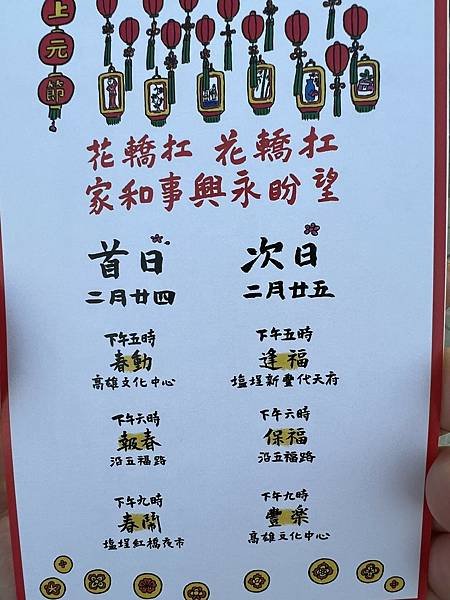 上元節
花轎扛 花轎扛
家和事興永盼望
首日
二月廿四
下午五時
春動
高雄文化中心
下午六時
報春
沿五福路
下午九時
春鬧
塩埕紅橋夜市
次日
二月廿五
下午五時
逢福
塩埕新豐代天府
下午六時
保福
沿五福路
下午九時
豐樂
高雄文化中心